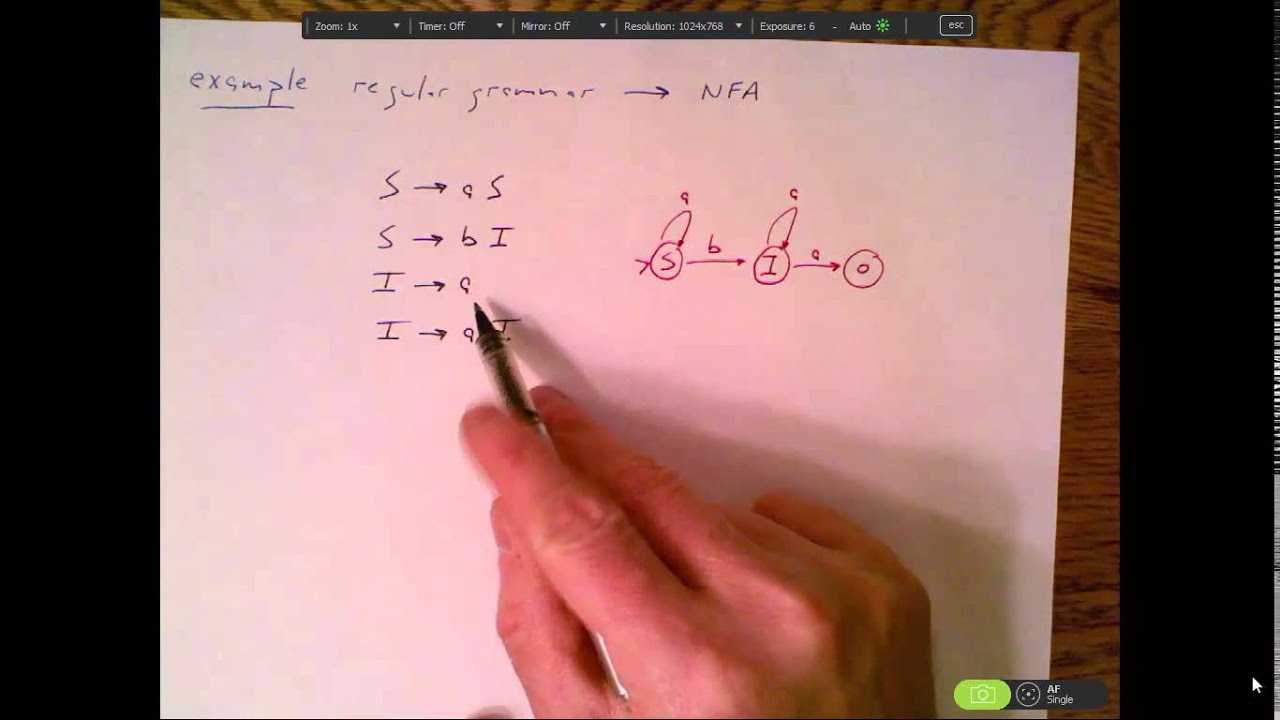 Zoom: 1x Timer: Off Mirror: Off Resolution: 1024x768 Exposure: 6 - Auto esc
example regular grammar → NFA
S → a S
S → b I
I → a
I → a I
a a
S b I a O
AF
Single